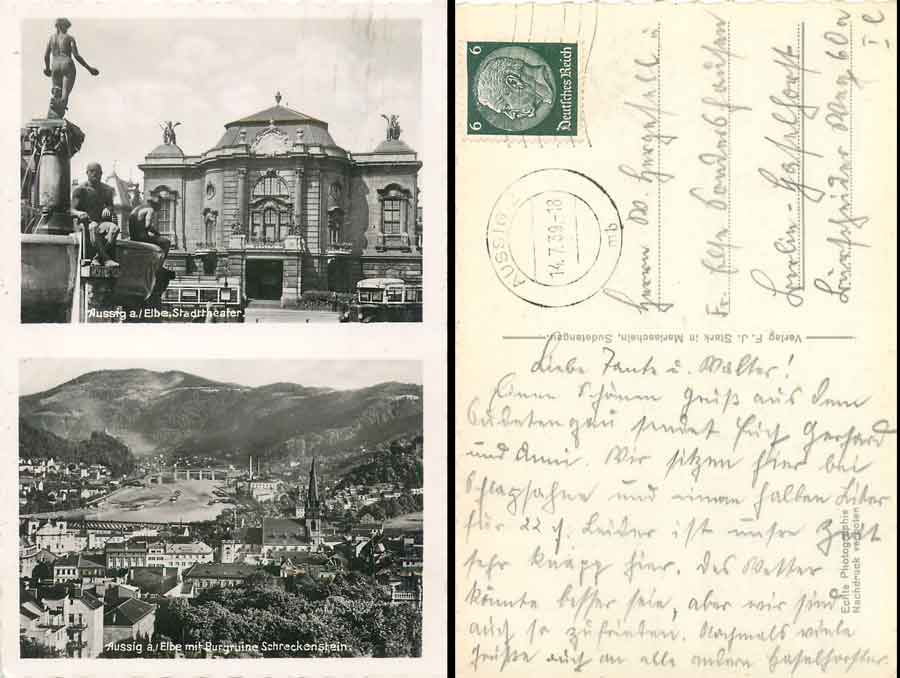 Aussig a./Elbe, Stadttheater.
Aussig a./Elbe mit Burgruine Schreckenstein.
6 Deutsches Reich 6
AUSSIG 2
14.7.39.-18
mb
Herrn W. Hergesell u.
Fr. Else Sondershausen
Berlin - Haselhorst
Weg 60a
I l
Verlag F. J. Stark in Mariaschein, Sudetengau.
Echte Photographie
Nachdruck verboten
Liebe Tante u. Walter!
Einen schönen Gruß aus dem
Sudetengau sendet Euch Gerhard
und Anni. Wir sitzen hier bei
Schlagsahne und einem halben Liter
für 22 ₰. Leider ist unsre Zeit
sehr knapp hier. Das Wetter
könnte besser sein, aber wir sind
auch so zufrieden. Nochmals viele
Grüße auch an alle andern Haselhorster.